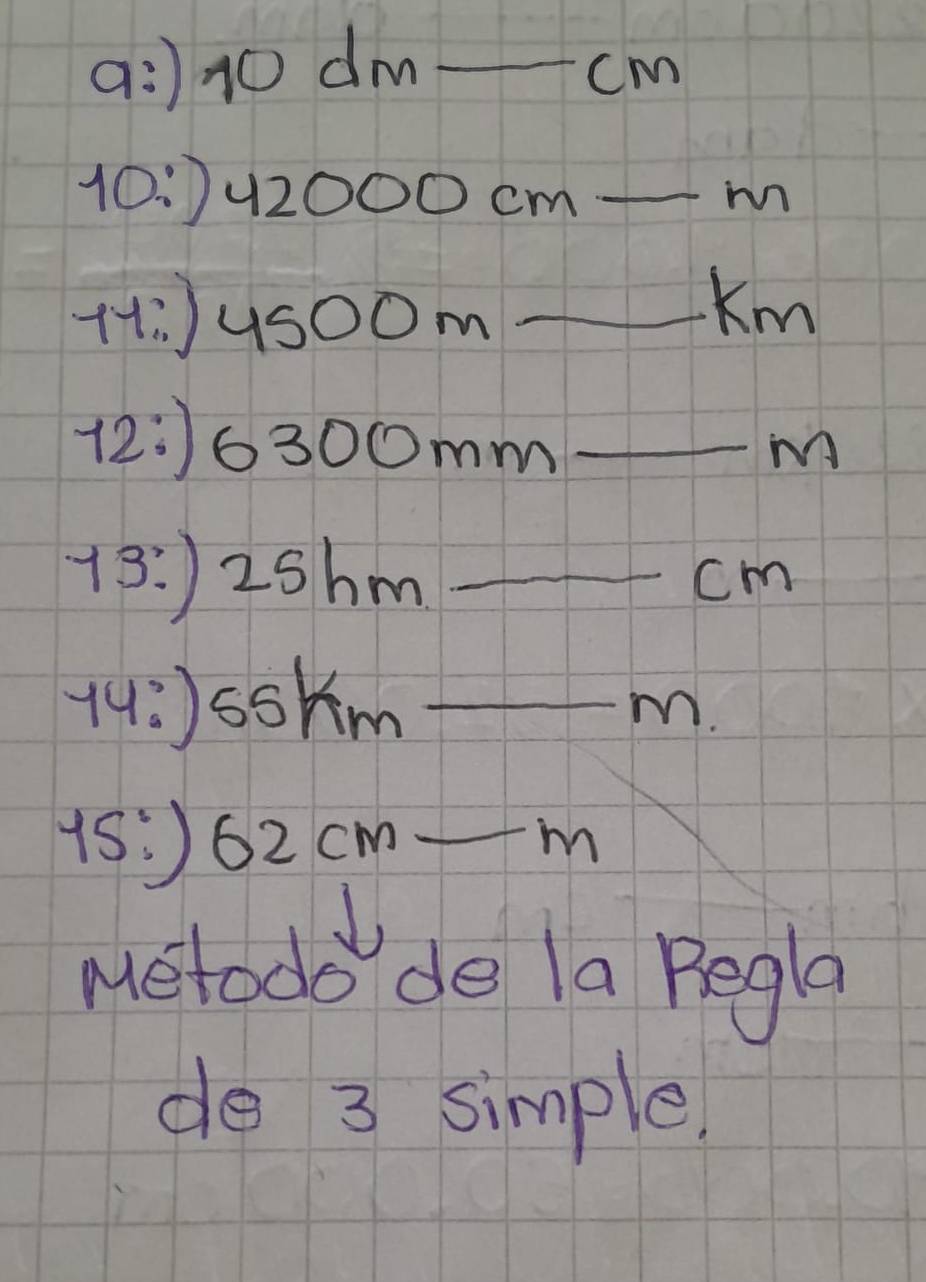 9:) 10 dm — cm
10:) 42000 cm — m
11:) 4500 m — Km
12:) 6300 mm — m
13:) 25 hm — cm
14:) 55 Km — m.
15:) 62 cm — m
↓
Método de la Regla
de 3 simple.